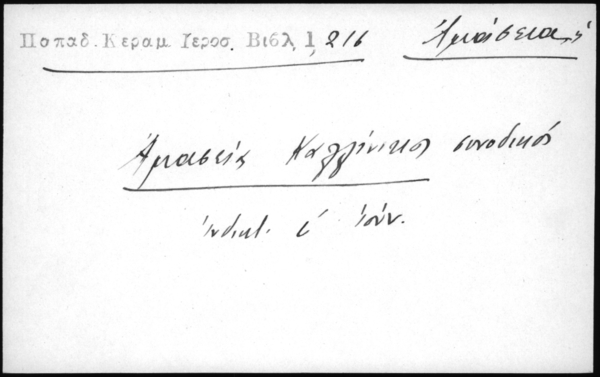 Παπαδ. Κεραμ Ιεροσ. Βιβλ 1, 216 Ἀμάσεια, ἡ
Ἀμασείας Καλλίνικος συνοδικός
ἰνδικτ. ι΄ Ἰούν.